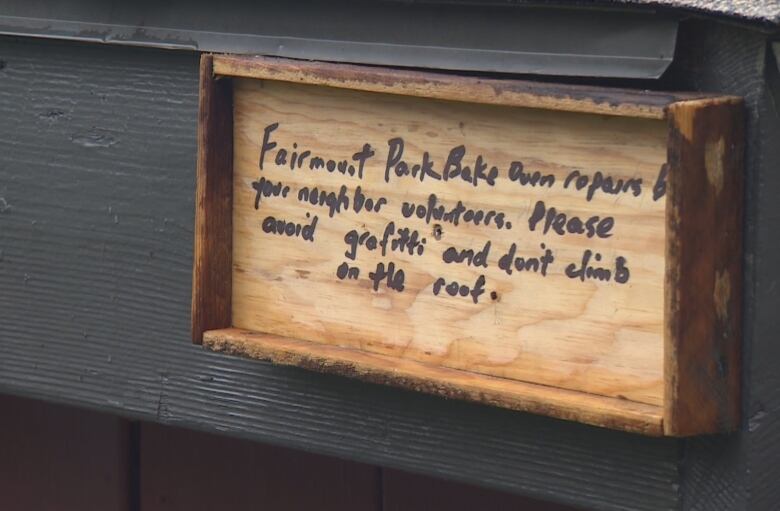 Fairmount Park Bake Oven repairs b
your neighbor volunteers. Please
avoid grafitti and don't climb
on the roof.